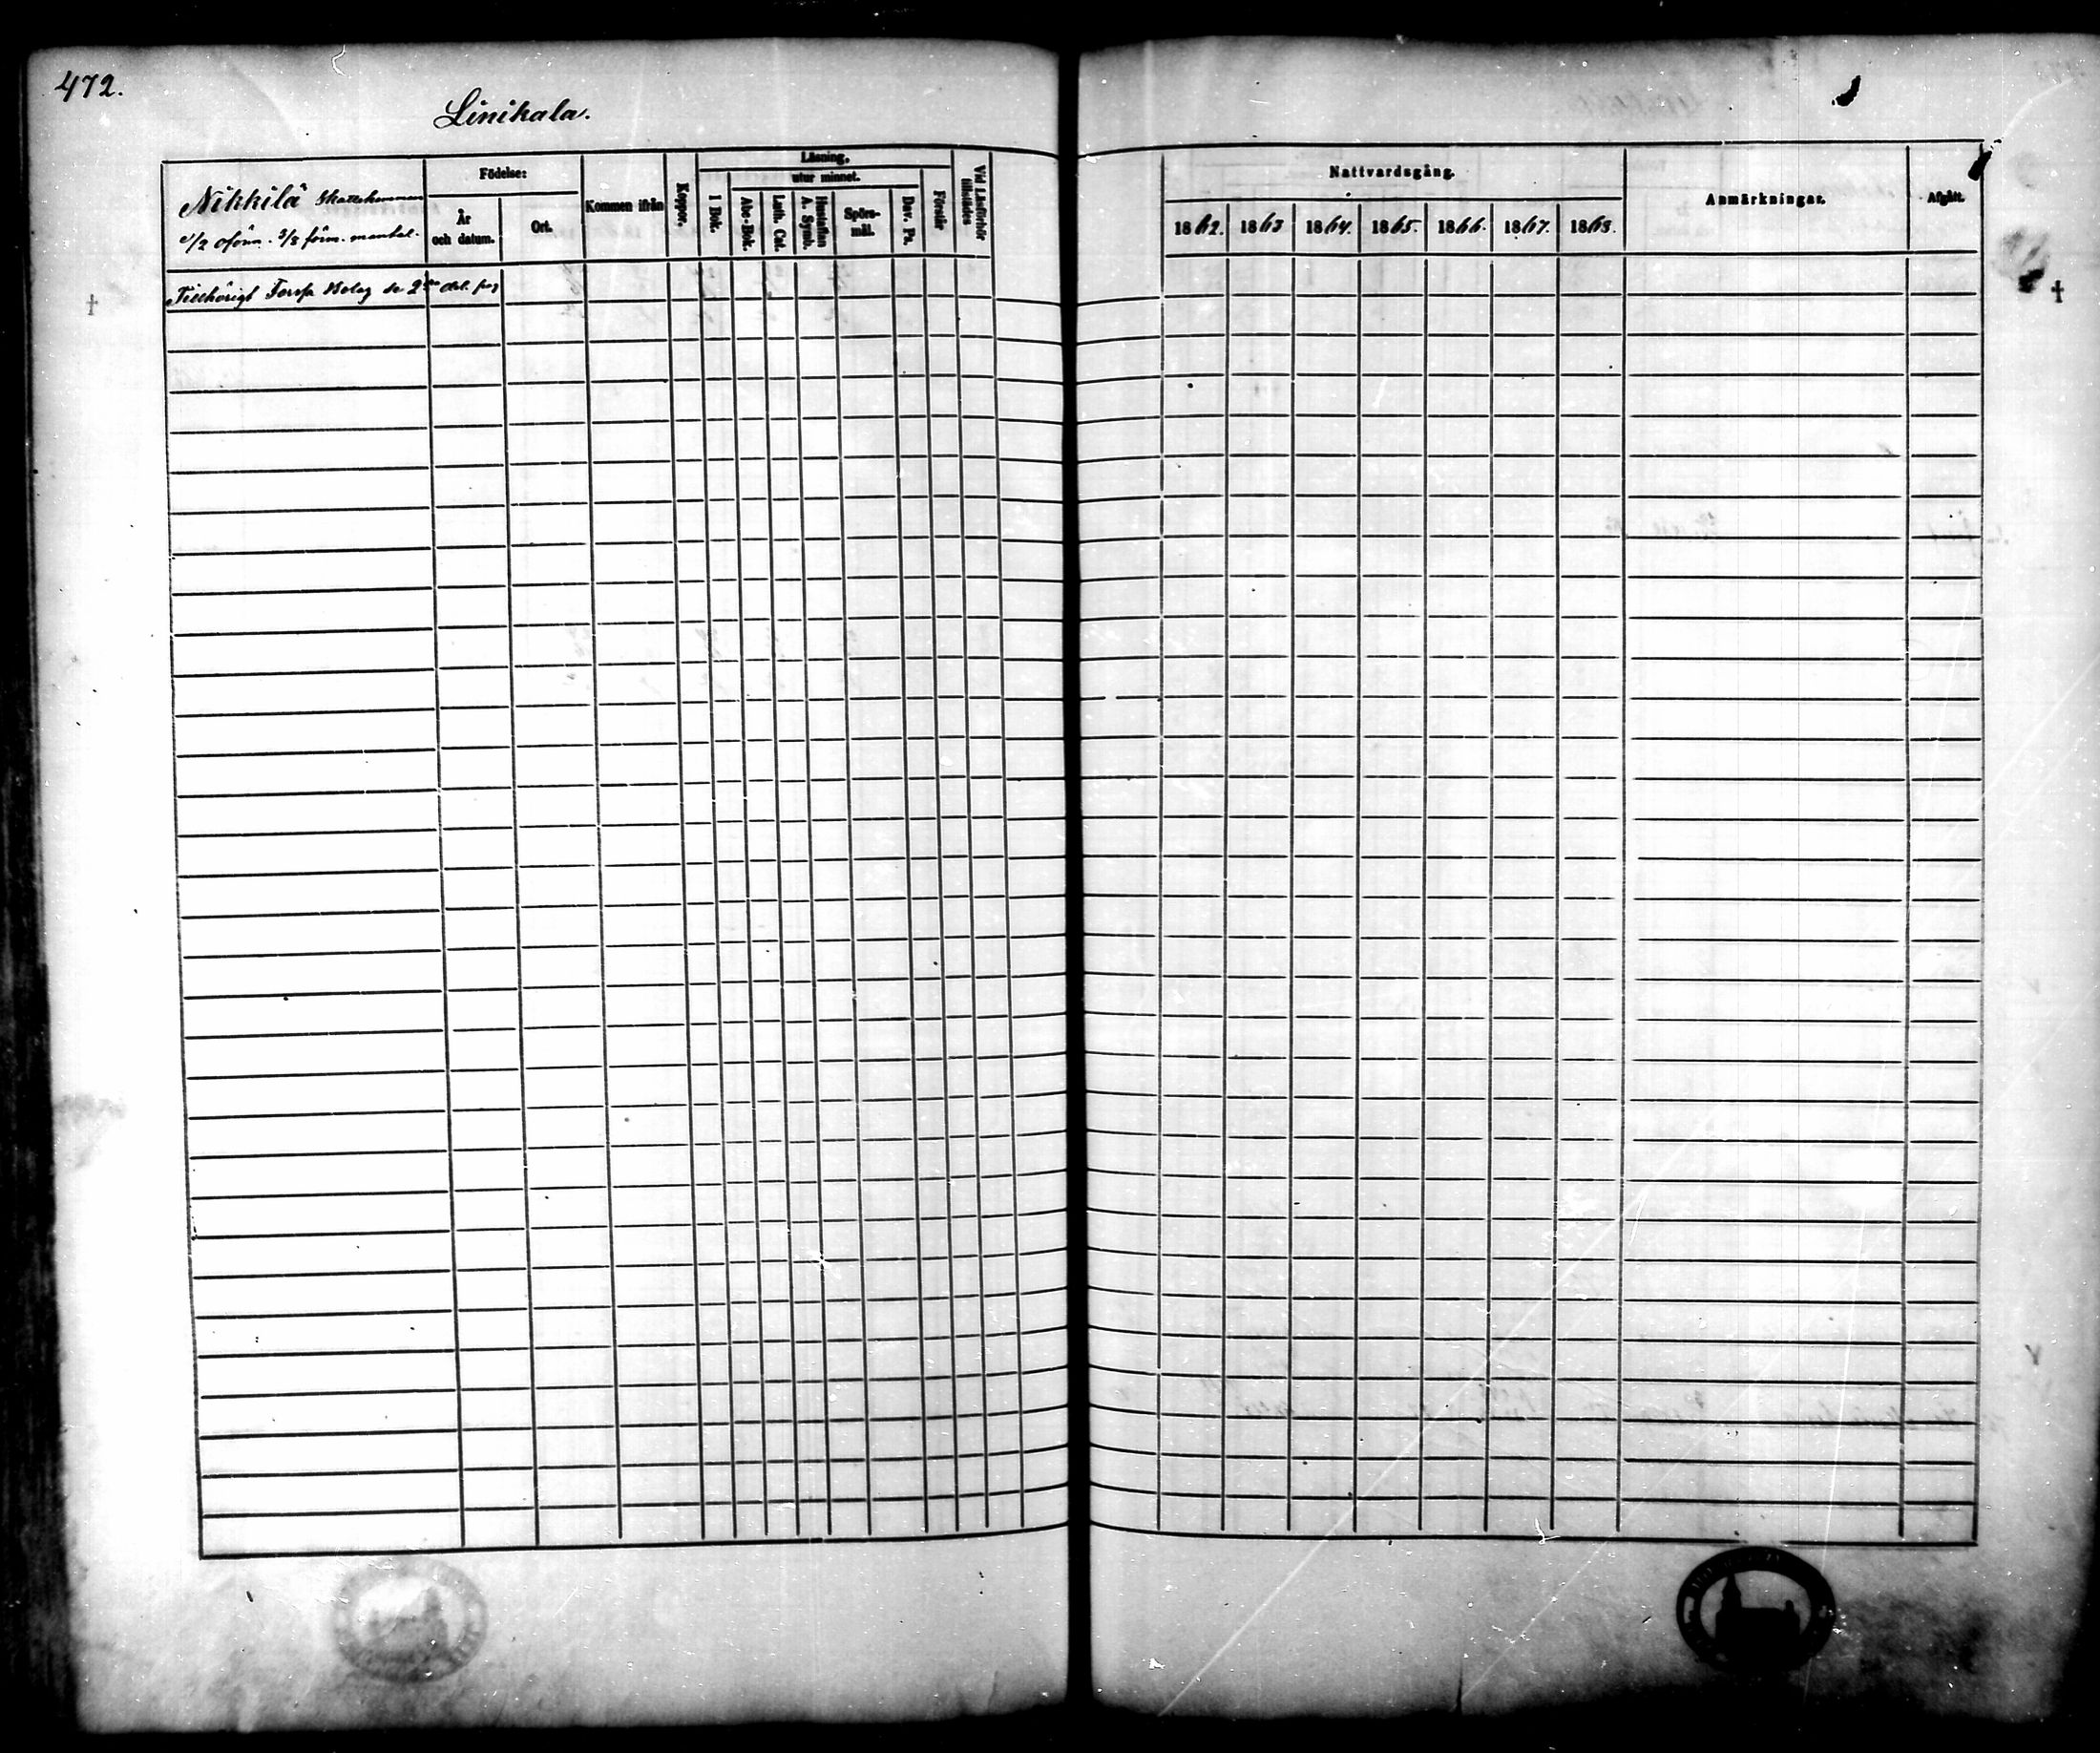 472.
Linikala.
Nikkilä Skattehemman
1/2 oförm. 3/8 förm. mantal.
Födelse:
År och datum.
Ort.
Kommen ifrån
Koppor.
Läsning,
I Bok.
utur minnet.
Abc-Bok.
Luth. Cat.
Hustaflan A. Symb.
Spörs-mål.
Dav. Ps.
Förstår
Vid Läsförhör tillstädes
Nattvardsgång.
1862.
1863
1864.
1865.
1866.
1867.
1868.
Anmärkningar.
Afgått.
Tillhörigt Forssa Bolag se 2 del. pag
†
†